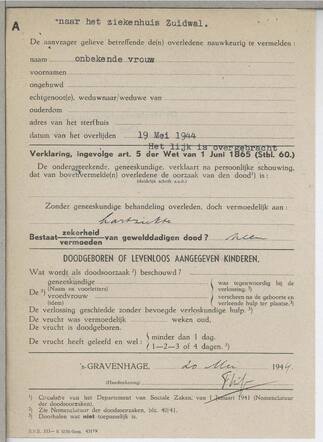 A
naar het ziekenhuis Zuidwal.
De aanvrager gelieve betreffende de(n) overledene nauwkeurig te vermelden:
naam onbekende vrouw
voornamen
ongehuwd
echtgenoot(e), weduwnaar/weduwe van
ouderdom
adres van het sterfhuis
datum van het overlijden 19 Mei 1944
Het lijk is overgebracht
Verklaring, ingevolge art. 5 der Wet van 1 Juni 1865 (Stbl. 60.)
De ondergeteekende, geneeskundige, verklaart na persoonlijke schouwing,
dat van bovenvermelde(n) overledene de oorzaak van den dood¹) is:
(duidelijk schrift s.v.p.)
Zonder geneeskundige behandeling overleden, doch vermoedelijk aan:
hartziekte
Bestaat zekerheid
vermoeden van gewelddadigen dood? neen
DOODGEBOREN OF LEVENLOOS AANGEGEVEN KINDEREN.
Wat wordt als doodsoorzaak²) beschouwd?
De³) geneeskundige
(Naam en voorletters)
vroedvrouw
(idem)
was tegenwoordig bij de
verlossing.³)
verscheen na de geboorte en
verleende hulp ter plaatse.³)
De verlossing geschiedde zonder bevoegde verloskundige hulp.³)
De vrucht was vermoedelijk weken oud.
De vrucht is doodgeboren.
De vrucht heeft geleefd en wel: minder dan 1 dag.
1—2—3 of 4 dagen.³)
's-GRAVENHAGE, 20 Mei 1944
(Handteekening)
¹) Circulaire van het Departement van Sociale Zaken, van 1 Januari 1941 (Nomenclatuur
der doodsoorzaken).
²) Zie Nomenclatuur der doodsoorzaken, blz. 40/41.
³) Doorhalen wat niet toepasselijk is.